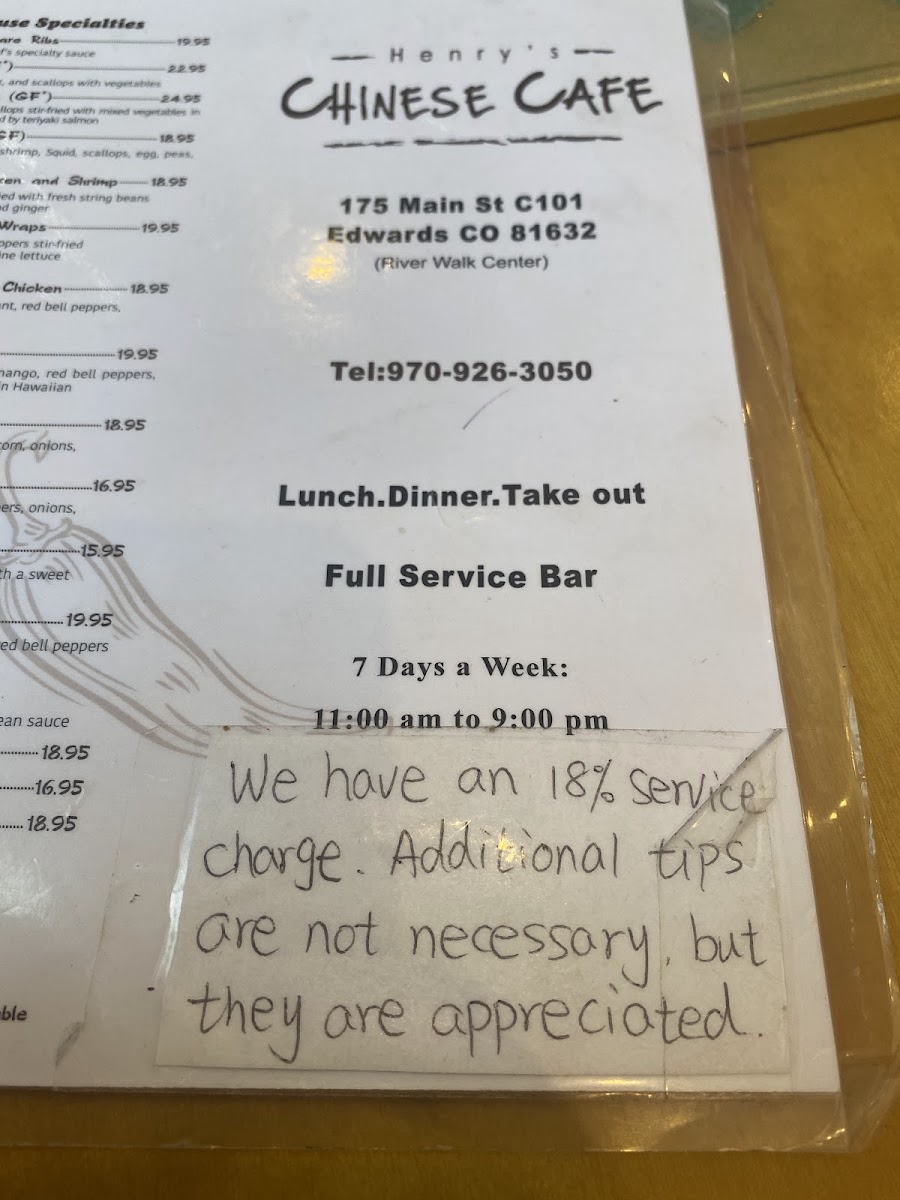 use Specialties
are Ribs 19.95
f's specialty sauce
") 22.95
, and scallops with vegetables
(GF*) 24.95
llops stir-fried with mixed vegetables in
d by teriyaki salmon
GF) 18.95
shrimp, Squid, scallops, egg, peas,
ken and Shrimp 18.95
ied with fresh string beans
nd ginger
Wraps 19.95
ppers stir-fried
ine lettuce
Chicken 18.95
nt, red bell peppers,
19.95
mango, red bell peppers,
in Hawaiian
18.95
corn, onions,
16.95
ers, onions,
15.95
th a sweet
19.95
red bell peppers
ean sauce
18.95
16.95
18.95
ble
Henry's
CHINESE CAFE
175 Main St C101
Edwards CO 81632
(River Walk Center)
Tel:970-926-3050
Lunch.Dinner.Take out
Full Service Bar
7 Days a Week:
11:00 am to 9:00 pm
We have an 18% service
charge. Additional tips
are not necessary, but
they are appreciated.